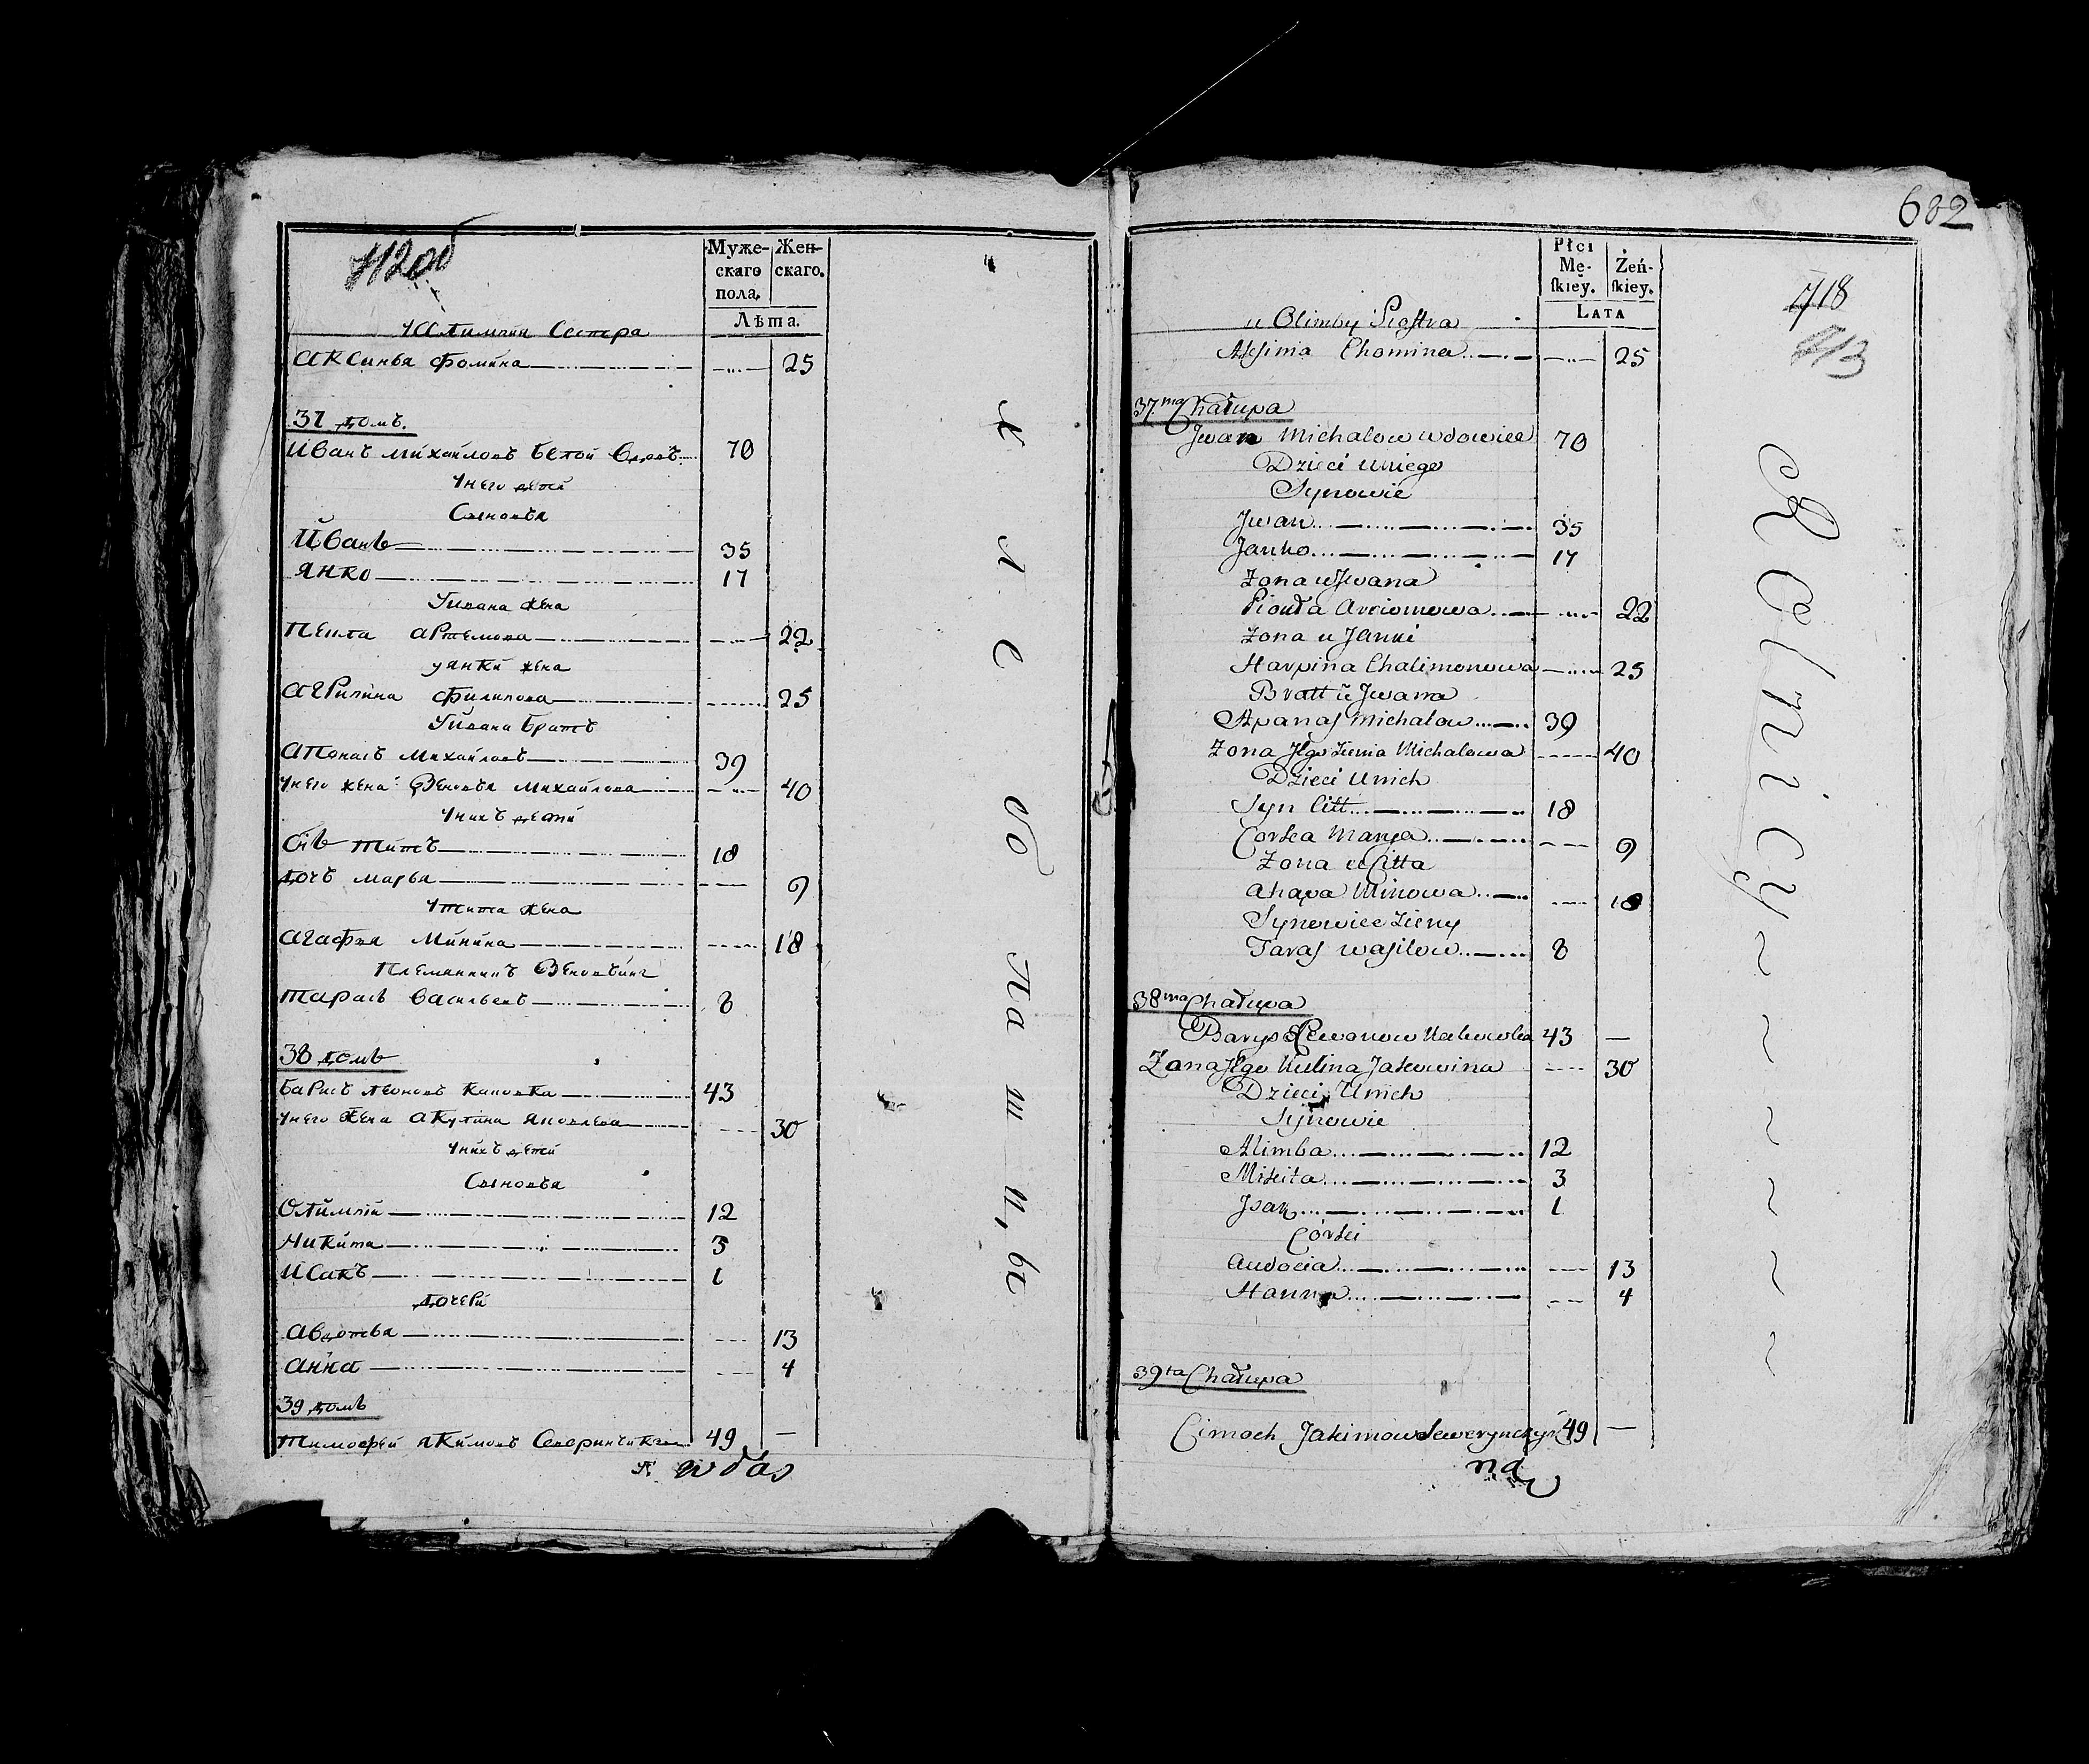 412 об
Муже-
скаго
пола.
Жен-
скаго.
Лѣта.
У Алимпия Сестра
Аксинья Фомина 25
37 домъ.
Иванъ Михайловъ Белой Вдовъ 70
У него дети
Сыновья
Иванъ 35
Янко 17
У Ивана жена
Пекла Артемова 22
у Янки жена
Агрипина Филипова 25
У Ивана братъ
Апонасъ Михайловъ 39
У него жена Зеновья Михайлова 40
У нихъ дети
Сiъ Титъ 18
Дочь Марья 9
У Тита жена
Агафья Минина 18
Племянникъ
Тарасъ Васильевъ 8
38 домъ
Барисъ Леоновъ 43
У него жена Акулина Яковлева 30
У нихъ дети
Сыновья
Олимпiй 12
Никита 3
Исакъ 1
дочери
Авдотья 13
Анна 4
39 домъ
Тимофей Якимовъ 49 —
хлебопашцы
602
Płci
Mę-
ſkiey.
Żeń-
ſkiey.
Lata
718
413
u Olimby Siostra
Axſinia Chomina 25
37ma Chałupa
Jwan Michałow wdowiec 70
Dzieci u niego
Synowie
Jwan 35
Janko 17
Zona u Jwana
Piokła Arciomowa 22
Zona u Janki
Harpina Chalimonowa 25
Bratt u Jwana
Apanaſ Michałow 39
Zona Jego Zienia Michalowa 40
Dzieci u nich
Syn Citt 18
Corka Marya 9
Zona u Citta
Ahapa Minowa 18
Synowiec Zieny
Taraſ Waſilow 8
38ma Chałupa
Barys 43 —
Zona Jego Kulina Jakowina 30
Dzieci u nich
Synowie
Alimba 12
Mikita 3
Jsak 1
Córki
Audocia 13
Hanna 4
39ta Chałupa
Cimoch Jakimow 49 —
Rolnicy